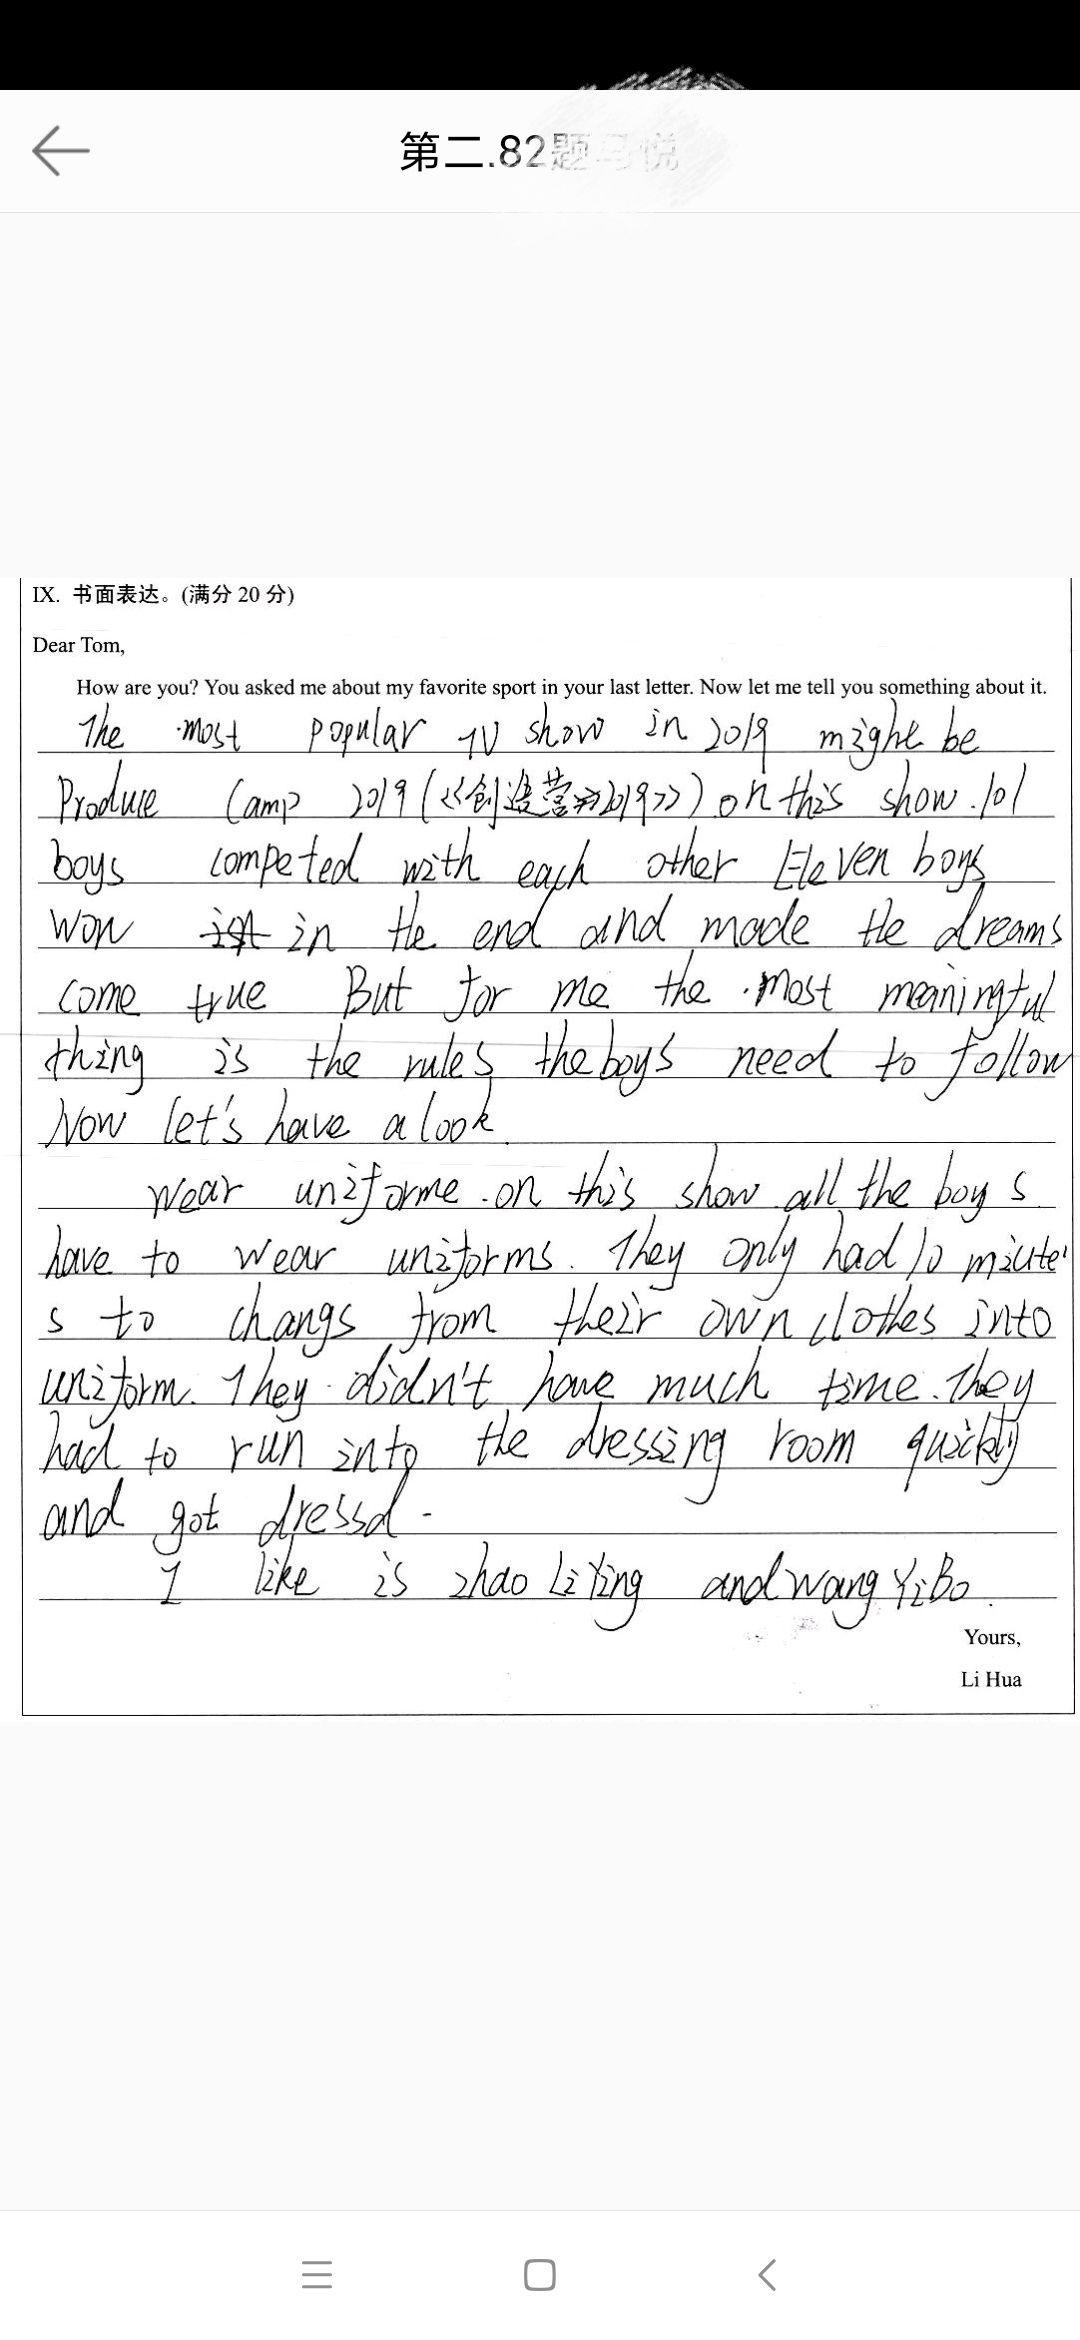 第二.82题马悦
IX. 书面表达。(满分 20 分)
Dear Tom,
How are you? You asked me about my favorite sport in your last letter. Now let me tell you something about it.
The most popular TV show in 2019 might be
Produce Camp 2019 (《创造营2019》) on this show. 101
boys competed with each other Eleven boys
won in the end and made the dreams
come true But for me the most meaningful
thing is the rules the boys need to follow
Now let's have a look
Wear uniforme. on this show all the boys
have to wear uniforms. They only had 10 miute
s to changs from their own clothes into
uniform. They didn't have much time. They
had to run into the dressing room quickly
and got dressd.
I like is zhao Li Ying and wang Yi Bo.
Yours,
Li Hua